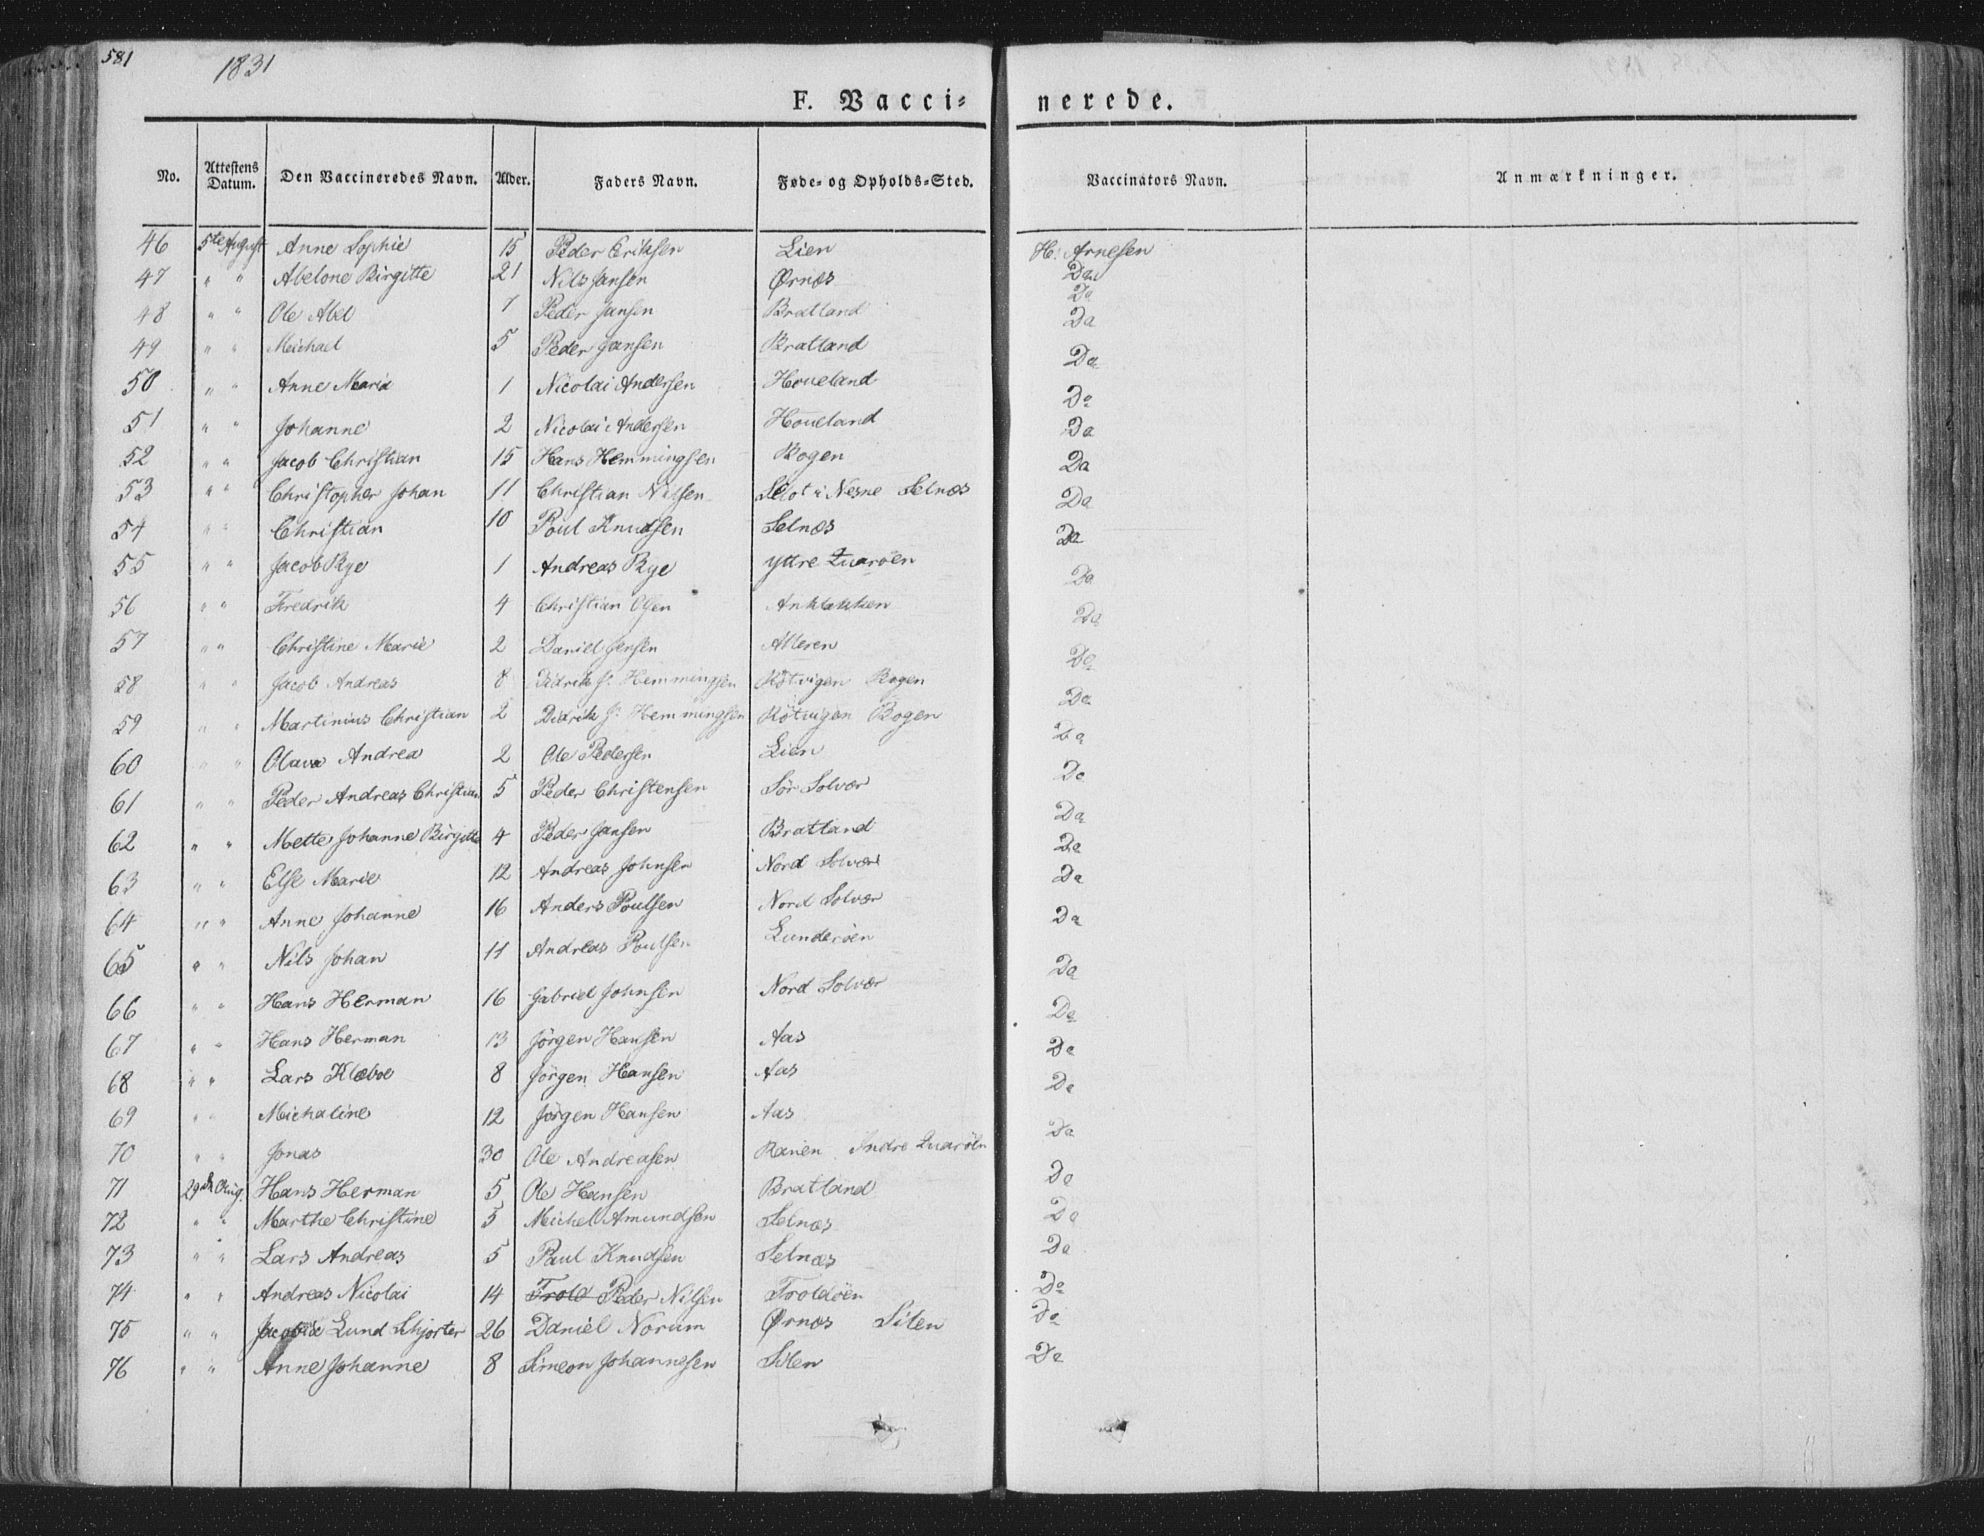 581
1831
F. Vacci= nerede.
No. Attestens Datum. Den Vaccineredes Navn. Alder. Faders Navn. Føde- og Opholds-Sted. Vaccinators Navn. Anmærkninger.
46 5te August Anne Sophie 15 Peder Eriksen Lien H. Arnesen
47 " " Abelone Birgitte 21 Nils Jansen Ørnæs Do
48 " " Ole Abel 7 Peder Jansen Bratland Do
49 " " Michael 5 Peder Jansen Bratland Do
50 " " Anne Maria 1 Nicolai Andersen Houeland Do
51 " " Johanne 2 Nicolai Andersen Houeland Do
52 " " Jacob Christian 15 Hans Hemmingsen Bogen Do
53 " " Christopher Johan 11 Christian Nilsen i Nesne Selnæs Do
54 " " Christian 10 Poul Knudsen Selnæs Do
55 " " Jacob Rye 1 Andreas Rye Yttre Quarøen Do
56 " " Fredrik 4 Christian Olsen Anklakken Do
57 " " Christine Marie 2 Daniel Jensen Alteren Do
58 " " Jacob Andreas 8 Didrik J. Hemmingsen Røtvigen Bogen Do
59 " " Martinius Christian 2 Didrik J. Hemmingsen Røtvigen Bogen Do
60 " " Olava Andrea 2 Ole Pedersen Lien Do
61 " " Peder Andreas Christian 5 Peder Christensen Sør Solvær Do
62 " " Mette Johanne Birgitte 4 Peder Jansen Bratland Do
63 " " Else Marie 12 Andreas Johnsen Nord Solvær Do
64 " " Anne Johanne 16 Anders Poulsen Nord Solvær Do
65 " " Nils Johan 11 Andreas Poulsen Lunderøen Do
66 " " Hans Herman 16 Gabriel Johnsen Nord Solvær Do
67 " " Hans Herman 13 Jørgen Hansen Aas Do
68 " " Lars Klæboe 8 Jørgen Hansen Aas Do
69 " " Michaline 12 Jørgen Hansen Aas Do
70 " " Jonas 30 Ole Andreasen Ranen Indre Quarøen Do
71 29de Aug. Hans Herman 5 Ole Hansen Bratland Do
72 " " Marthe Christine 5 Michel Amundsen Selnæs Do
73 " " Lars Andreas 5 Paul Knudsen Selnæs Do
74 " " Andreas Nicolai 14 Trold Peder Nilsen Troldöen Do
75 " " Lund Schjorter 26 Daniel Norum Ørnæs Silen Do
76 " " Anne Johanne 8 Simeon Johannesen Silen Do